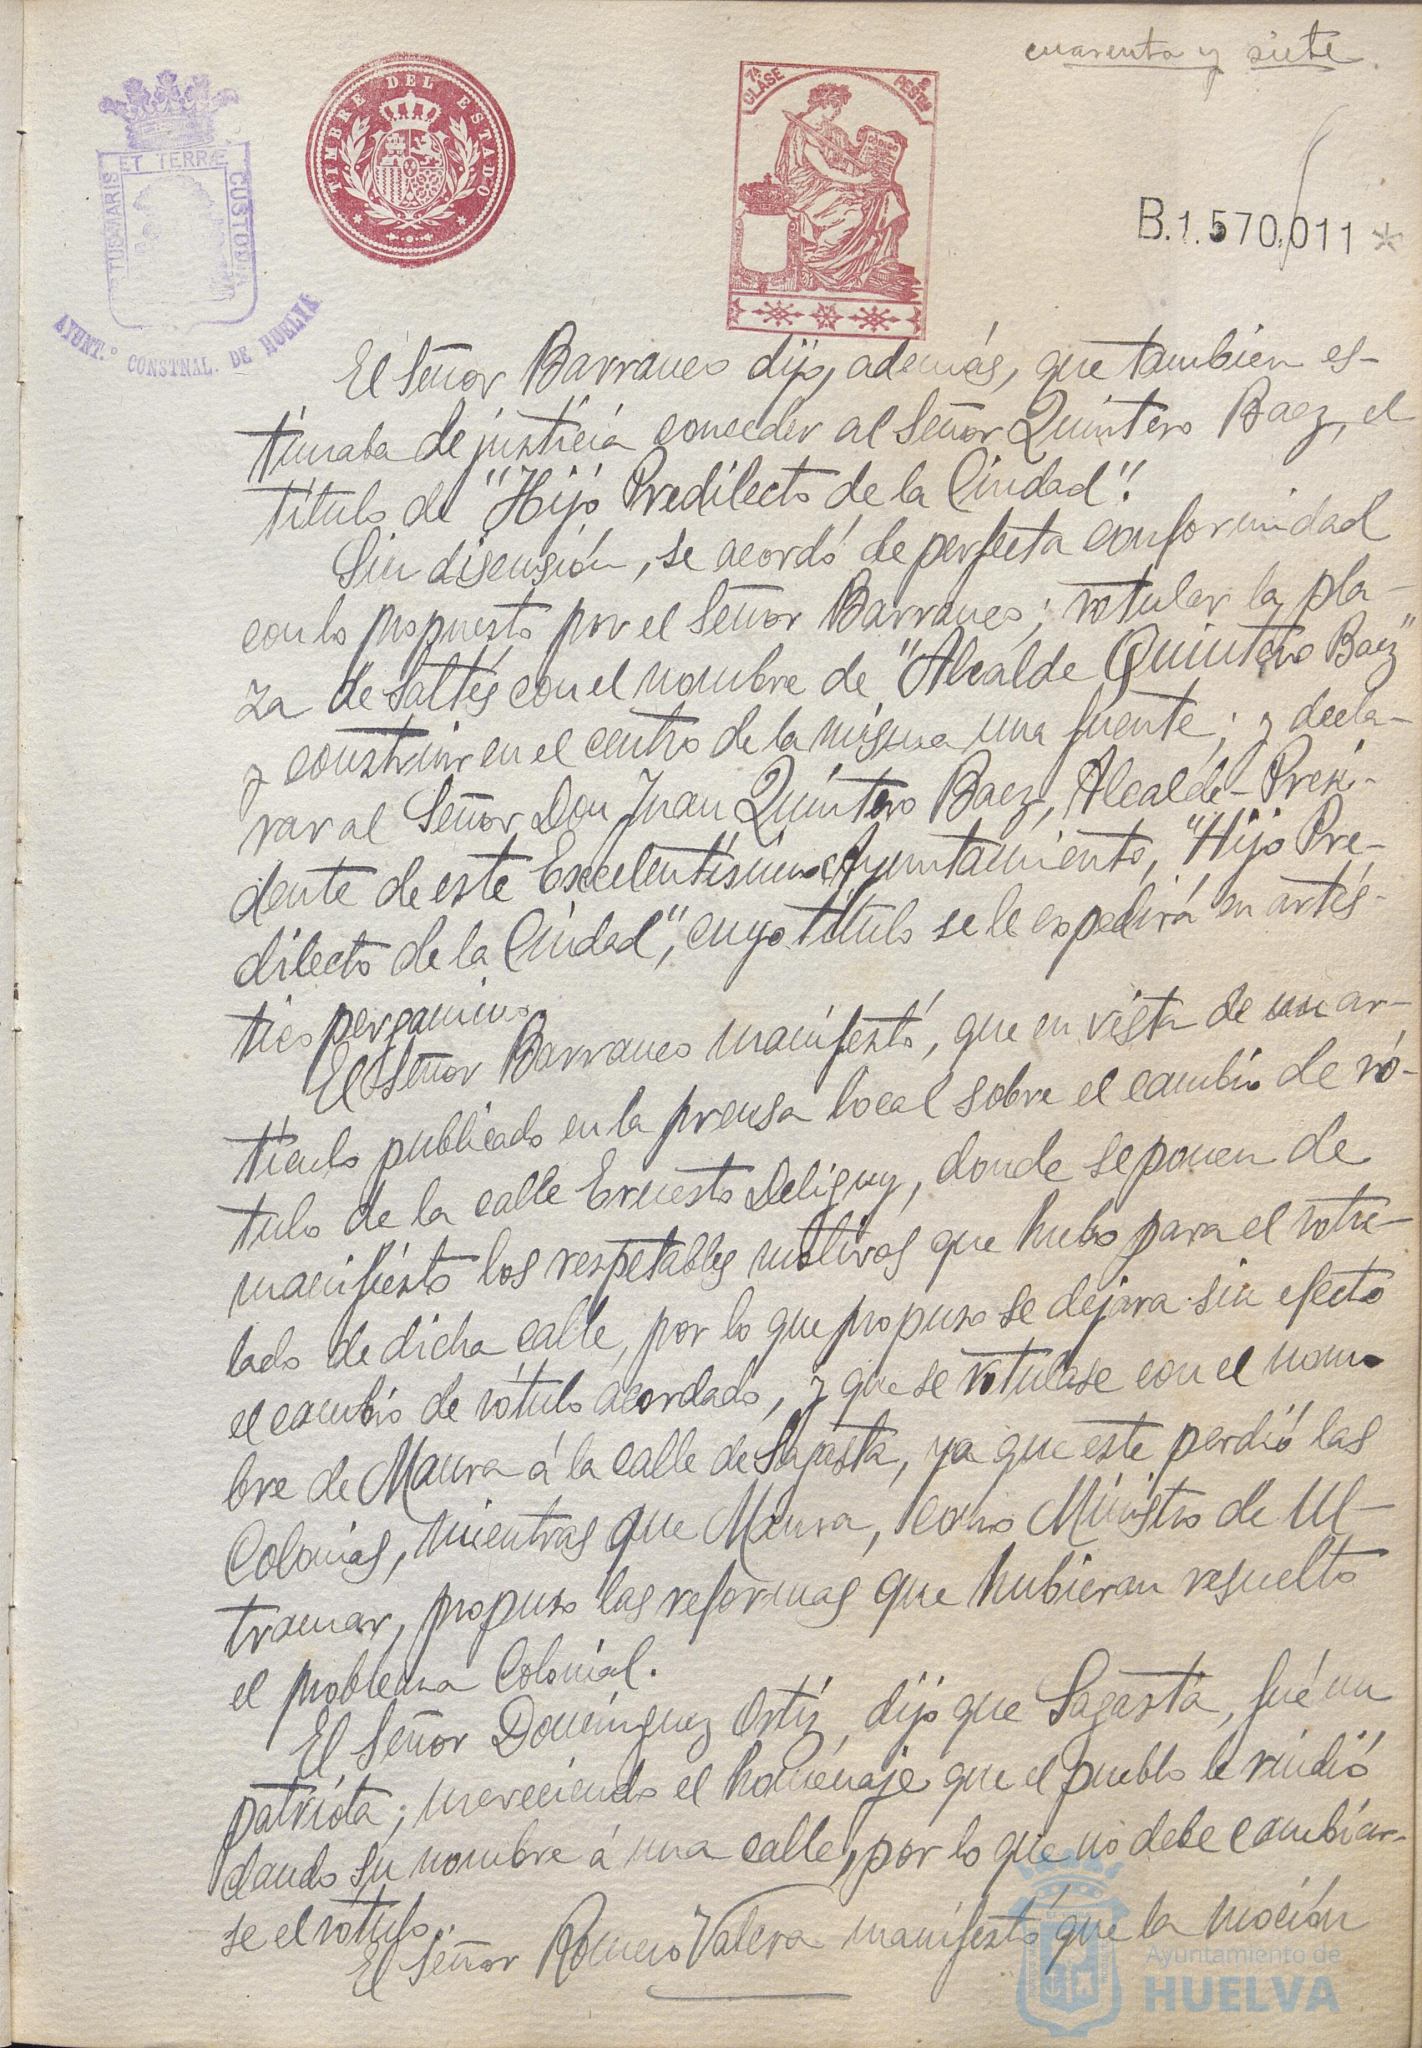 cuarenta y siete
TIMBRE DEL ESTADO
7ª CLASE
PESETAS
CODIGO
PORTUS MARIS ET TERRÆ CUSTODIA
AYUNT.º CONSTNAL. DE HUELVA
B.1.570,011 *
El Señor Barranco dijo, además, que tambien es-
timaba de justicia conceder al Señor Quintero Baez, el
título de "Hijo Predilecto de la Ciudad".
Sin discusión, se acordó de perfecta conformidad
con lo propuesto por el Señor Barranco; rotular la pla-
za de Saltés con el nombre de "Alcalde Quintero Baez"
y construir en el centro de la misma una fuente; y decla-
rar al Señor Don Juan Quintero Baez, Alcalde-Presi-
dente de este Excelentísimo Ayuntamiento, "Hijo Pre-
dilecto de la Ciudad", cuyo título se le expedirá en artís-
tico pergamino.
El Señor Barranco manifestó, que en vista de un ar-
tículo publicado en la prensa local sobre el cambio de ró-
tulo de la calle Ernesto Deligny, donde se ponen de
manifiesto los respetables motivos que hubo para el rotu-
lado de dicha calle, por lo que propuso se dejara sin efecto
el cambio de rótulo acordado, y que se rotulase con el nom-
bre de Maura á la calle de Sagasta, ya que este perdió las
Colonias, mientras que Maura, como Ministro de Ul-
tramar, propuso las reformas que hubieran resuelto
el problema Colonial.
El Señor Domínguez Ortiz, dijo que Sagasta, fué un
patriota; mereciendo el homenaje que el pueblo le rindió
dando su nombre á una calle, por lo que no debe cambiar-
se el rótulo.
El Señor Romero Valera manifestó que la moción
Ayuntamiento de
HUELVA